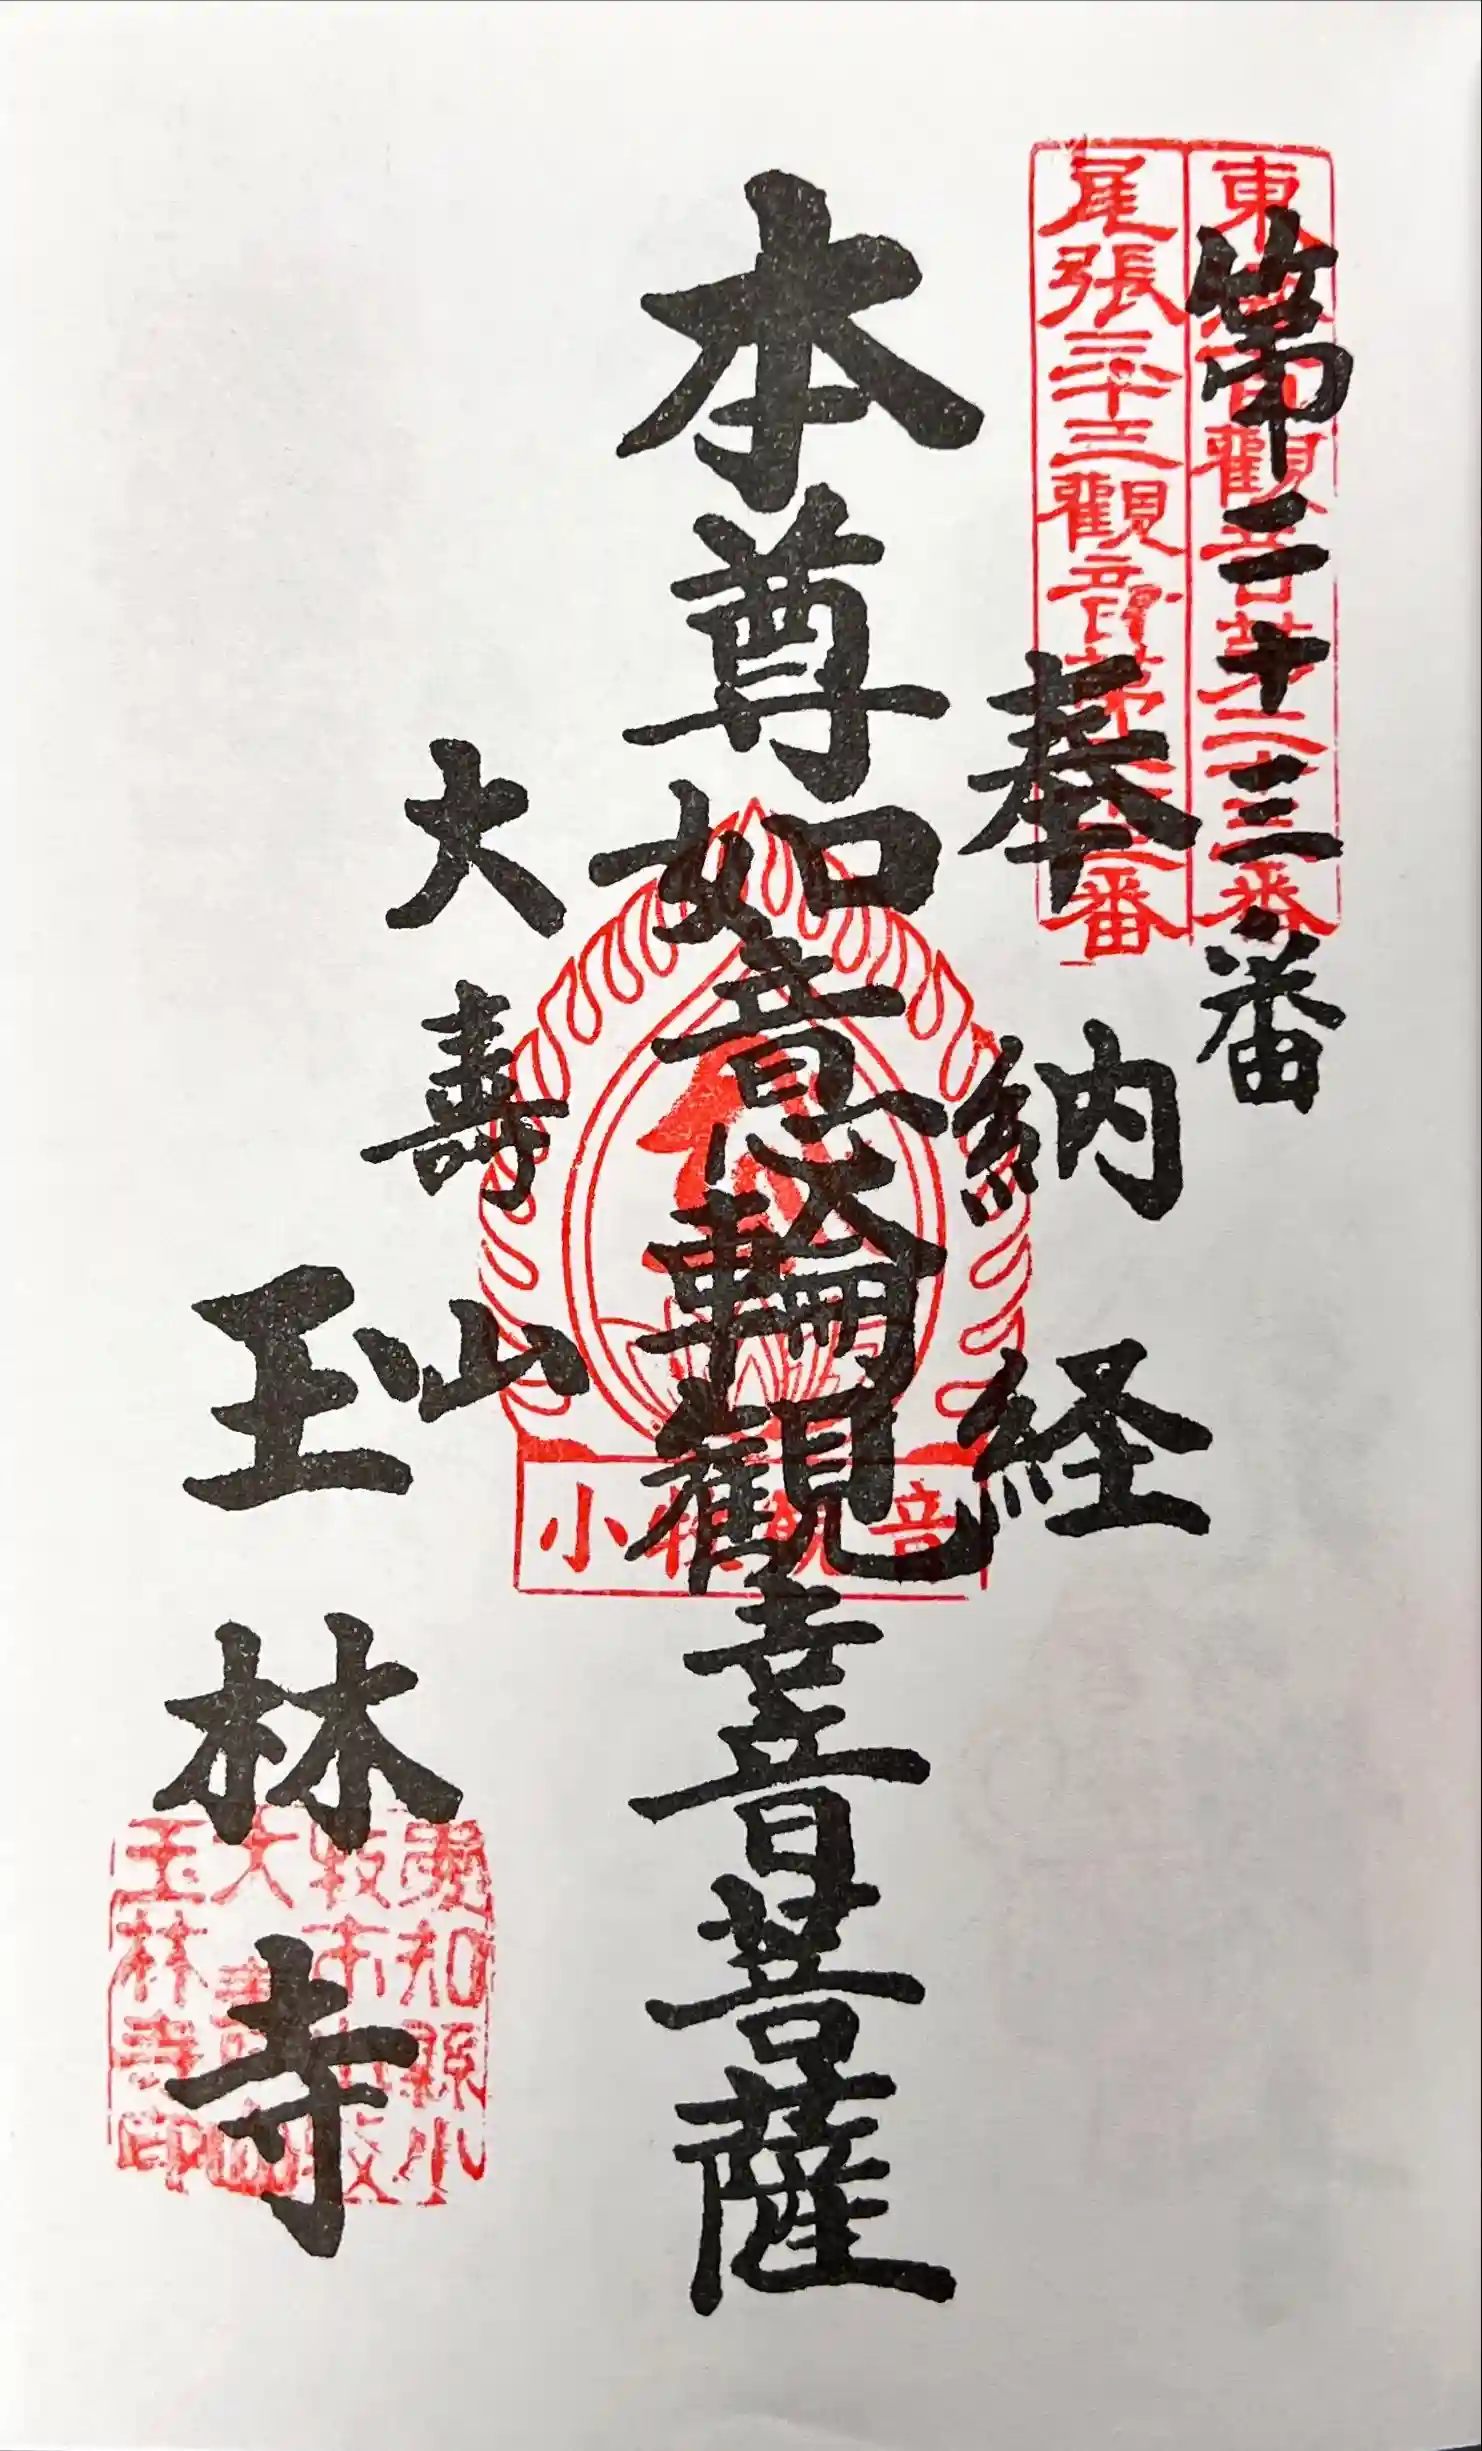 第二十三番
東海百観音第二十三番
尾張三十三観音第
番
奉納経
本尊如意輪観音菩薩
小牧観音
大壽山
玉林寺
愛知縣小
牧市小牧
大壽山
玉林寺印